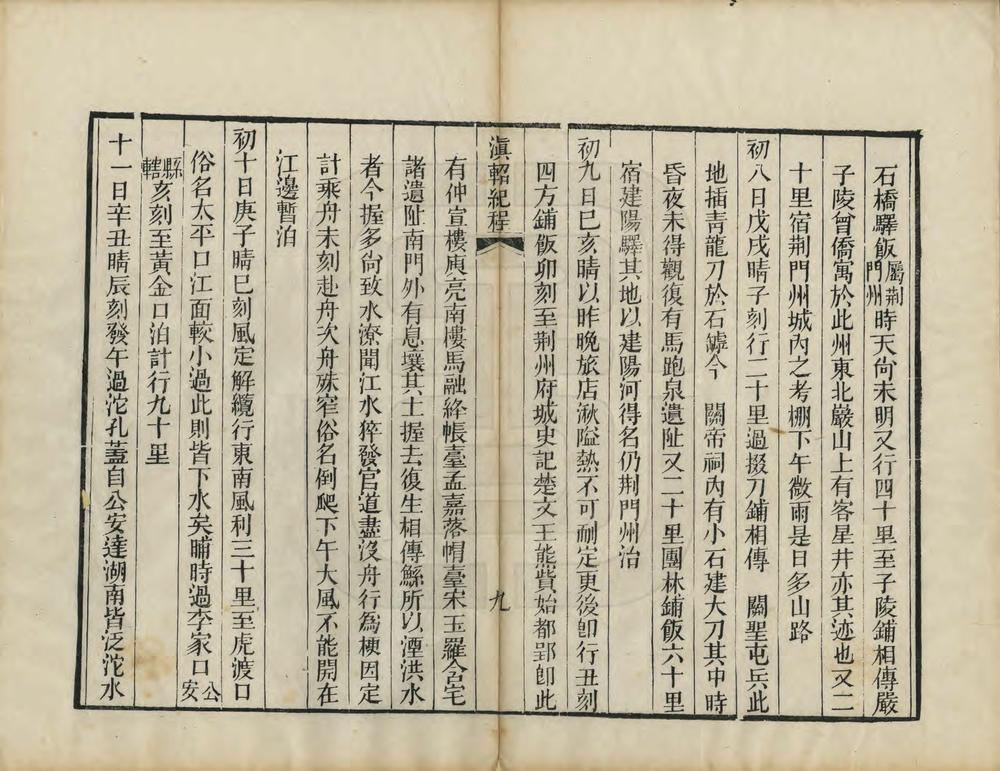 石橋驛飯屬荆門州時天尙未明又行四十里至子陵鋪相傳嚴
子陵曾僑寓於此州東北巖山上有客星井亦其迹也又二
十里宿荆門州城內之考棚下午微雨是日多山路
初八日戊戌晴子刻行二十里過掇刀鋪相傳　關聖屯兵此
地插靑龍刀於石罅今　關帝祠內有小石建大刀其中時
昏夜未得觀復有馬跑泉遺址又二十里團林鋪飯六十里
宿建陽驛其地以建陽河得名仍荆門州治
初九日己亥晴以昨晚旅店湫隘熱不可耐定更後卽行丑刻
四方鋪飯卯刻至荆州府城史記楚文王熊貲始都郢卽此
滇軺紀程　九
有仲宣樓庾亮南樓馬融絳帳臺孟嘉落帽臺宋玉羅含宅
諸遺址南門外有息壤其土握去復生相傳鯀所以湮洪水
者今握多尙致水潦聞江水猝發官道盡沒舟行爲梗因定
計乘舟未刻赴舟次舟殊窄俗名倒爬下午大風不能開在
江邊暫泊
初十日庚子晴巳刻風定解纜行東南風利三十里至虎渡口
俗名太平口江面較小過此則皆下水矣晡時過李家口公安
縣轄亥刻至黃金口泊計行九十里
十一日辛丑晴辰刻發午過沱孔蓋自公安達湖南皆泛沱水